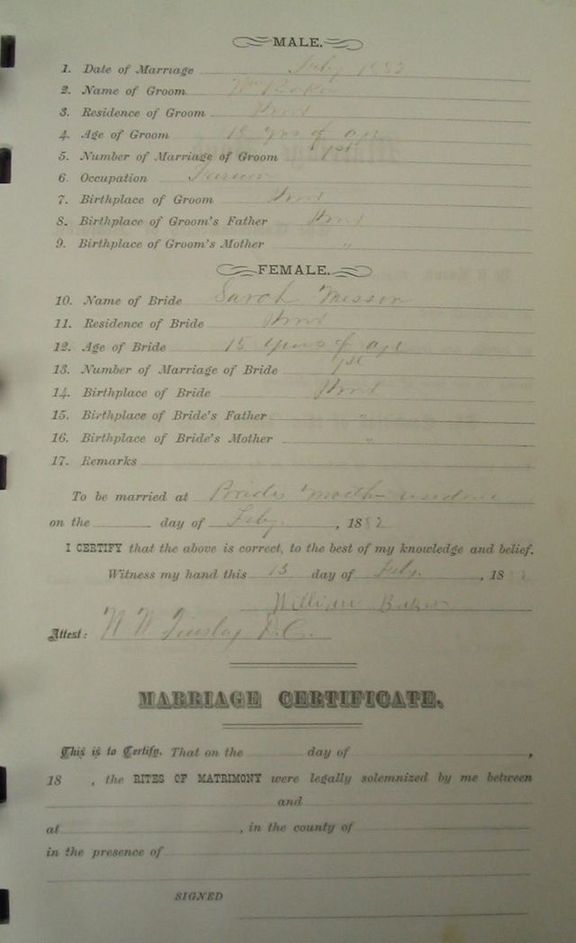 MALE.
1. Date of Marriage Feby 1882
2. Name of Groom Wm Baker
3. Residence of Groom
4. Age of Groom 19 yrs of age
5. Number of Marriage of Groom 1st
6. Occupation Farmer
7. Birthplace of Groom
8. Birthplace of Groom's Father
9. Birthplace of Groom's Mother "
FEMALE.
10. Name of Bride Sarah
11. Residence of Bride
12. Age of Bride 15 years of age
13. Number of Marriage of Bride 1st
14. Birthplace of Bride
15. Birthplace of Bride's Father "
16. Birthplace of Bride's Mother "
17. Remarks
To be married at Brides residence
on the day of Feby. , 1882
I CERTIFY that the above is correct, to the best of my knowledge and belief.
Witness my hand this 13 day of Feby. , 18
William Baker
Attest: W W Tinsley D.C.
MARRIAGE CERTIFICATE.
This is to Certify. That on the day of ,
18 , the RITES OF MATRIMONY were legally solemnized by me between
and
at , in the county of
in the presence of
SIGNED